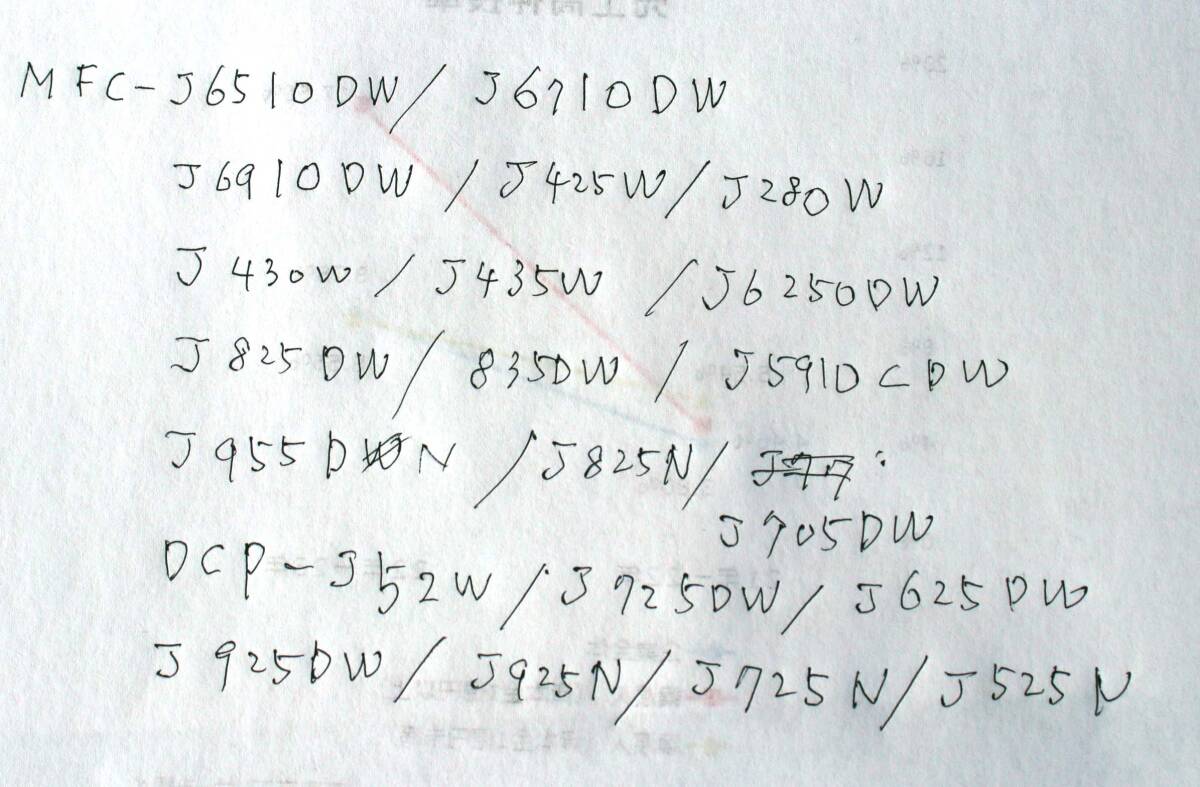 MFC-J6510DW/ J6710DW
J6910DW / J425W/ J280W
J430W / J435W / J6250DW
J825DW/ 835DW / J5910CDW
J955DN / J825N/
J705DW
DCP-J52W / J725DW/ J625DW
J925DW/ J925N/ J725N/ J525N